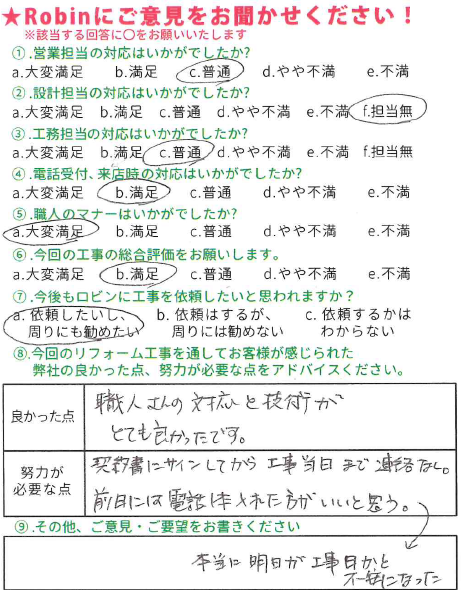 ★Robinにご意見をお聞かせください！
※該当する回答に〇をお願いいたします
①.営業担当の対応はいかがでしたか?
a.大変満足 b.満足 c.普通 d.やや不満 e.不満
②.設計担当の対応はいかがでしたか?
a.大変満足 b.満足 c.普通 d.やや不満 e.不満 f.担当無
③.工務担当の対応はいかがでしたか?
a.大変満足 b.満足 c.普通 d.やや不満 e.不満 f.担当無
④.電話受付、来店時の対応はいかがでしたか?
a.大変満足 b.満足 c.普通 d.やや不満 e.不満
⑤.職人のマナーはいかがでしたか?
a.大変満足 b.満足 c.普通 d.やや不満 e.不満
⑥.今回の工事の総合評価をお願いします。
a.大変満足 b.満足 c.普通 d.やや不満 e.不満
⑦.今後もロビンに工事を依頼したいと思われますか？
a. 依頼したいし、 b. 依頼はするが、 c. 依頼するかは
周りにも勧めたい 周りには勧めない わからない
⑧.今回のリフォーム工事を通してお客様が感じられた
弊社の良かった点、努力が必要な点をアドバイスください。
良かった点
職人さんの対応と技術が
とても良かったです。
努力が
必要な点
契約書にサインしてから工事当日まで連絡なし。
前日には電話1本入れた方がいいと思う。
⑨.その他、ご意見・ご要望をお書きください
本当に明日が工事日かと
不安になった